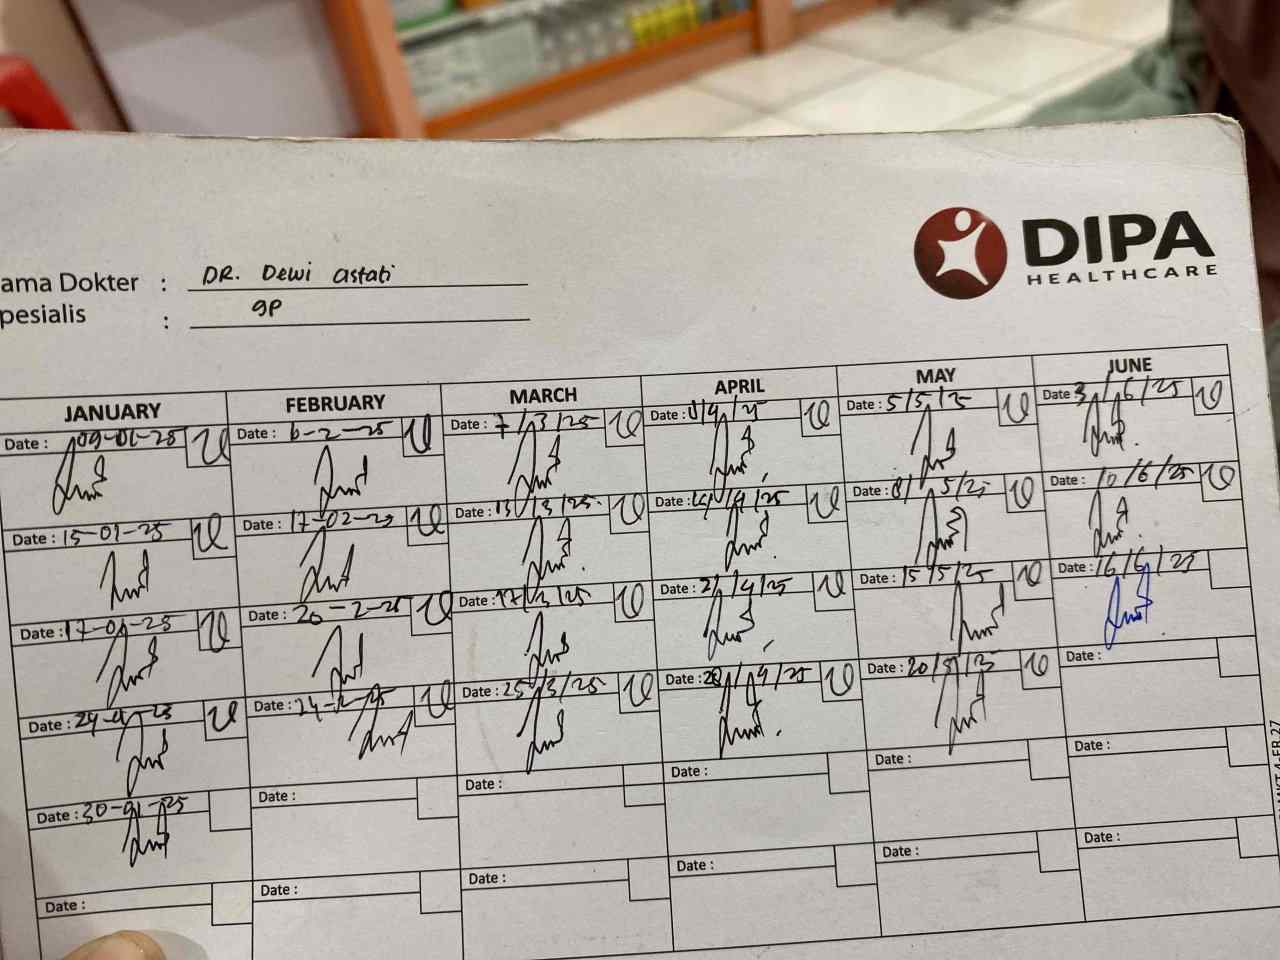 DIPA
HEALTHCARE
ama Dokter : DR. Dewi astati
pesialis : gp
JANUARY FEBRUARY MARCH APRIL MAY JUNE
Date : 09-01-25 Date : 6-2-25 Date : 7/3/25 Date : 8/4/25 Date : 5/5/25 Date : 3/6/25
Date : 15-01-25 Date : 17-02-25 Date : 13/3/25 Date : 14/4/25 Date : 8/5/25 Date : 10/6/25
Date : 17-01-25 Date : 20-2-25 Date : 17/3/25 Date : 21/4/25 Date : 15/5/25 Date : 16/6/25
Date : 24-01-25 Date : 24-2-25 Date : 25/3/25 Date : 28/4/25 Date : 20/5/25 Date :
Date : 30-01-25 Date : Date : Date : Date : Date :
Date : Date : Date : Date : Date : Date :